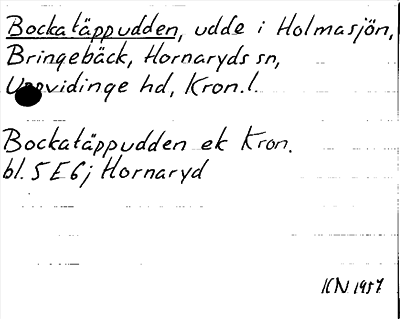 Bockatäppudden, udde i Holmasjön,
Bringebäck, Hornaryds sn,
Uppvidinge hd, Kron.l.
Bockatäppudden ek Kron.
bl. 5 E 6j Hornaryd
KN 1957